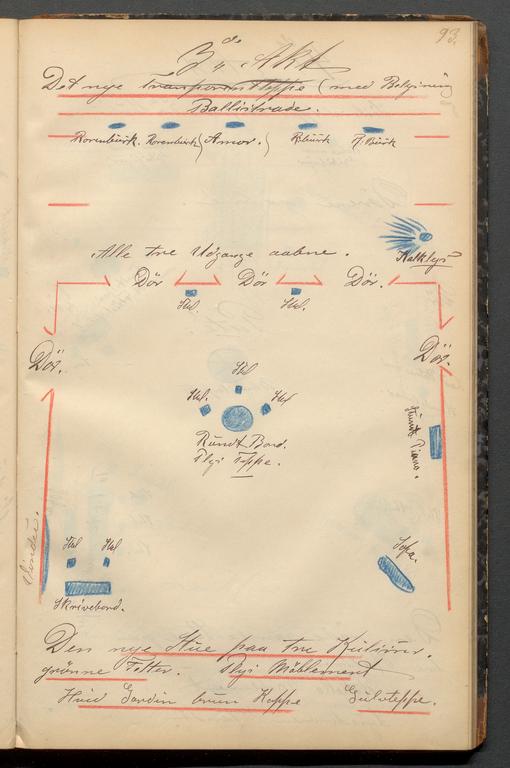 93.
3de Akt
Det nye Transparentteppe (med Belysning
Ballustrade.
Rosenbusk. Rosenbusk (Amor.) R.busk R.Busk
Alle tre Udgange aabne.
Kalklys
Dör Dör Dör.
Stol. Stol.
Dör. Dör.
Stol
Stol. Stol
Rundt Bord.
Teppe.
Piano.
Vindu.
Stol Stol
Sofa.
Skrivebord.
Den nye Stue paa tre Kulisser.
grønne Möblement
Hvid Gardin brun Kappe Gulvteppe.